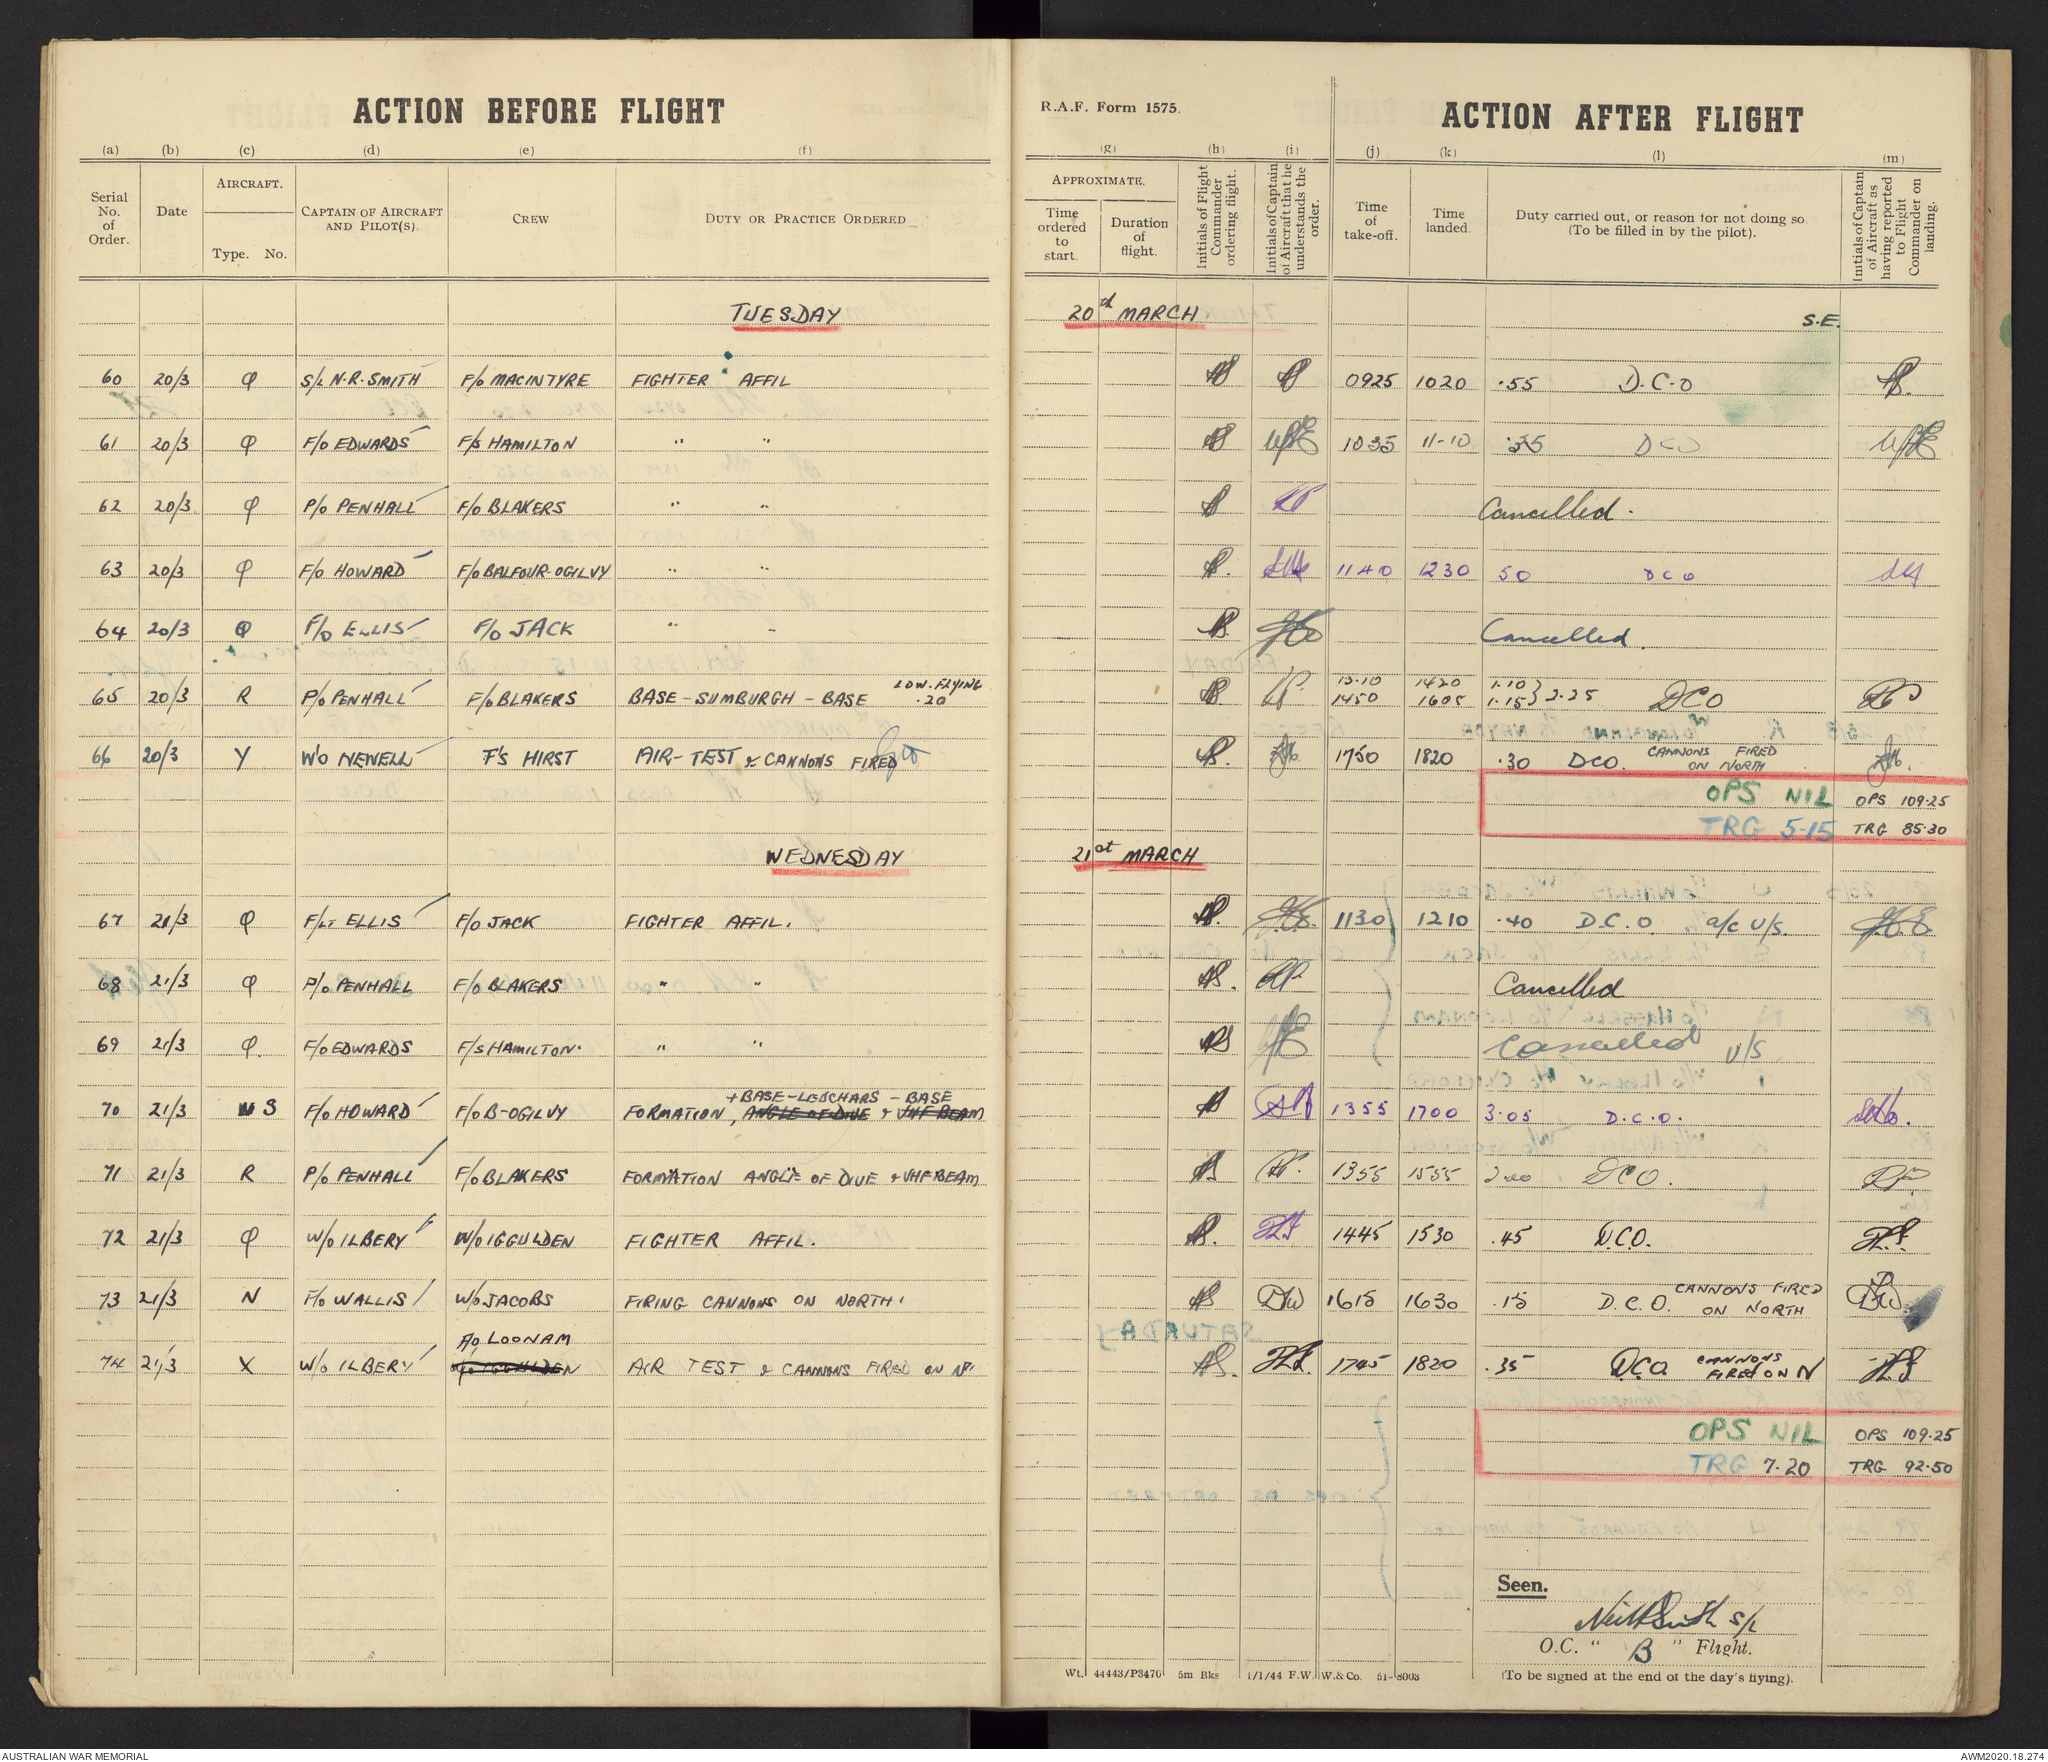 ACTION BEFORE FLIGHT
R.A.F. Form 1575.
ACTION AFTER FLIGHT
(a) (b) (c) (d) (e) (f) (g) (h) (i) (j) (k) (l) (m)
Serial No. of Order.
Date
AIRCRAFT.
Type. No.
CAPTAIN OF AIRCRAFT AND PILOT(S).
CREW
DUTY OR PRACTICE ORDERED
APPROXIMATE.
Time ordered to start.
Duration of flight.
Initials of Flight Commander ordering flight.
Initials of Captain of Aircraft that he understands the order.
Time of take-off.
Time landed.
Duty carried out, or reason for not doing so. (To be filled in by the pilot).
Initials of Captain of Aircraft as having reported to Flight Commander on landing.
TUESDAY 20th MARCH S.E.
60 20/3 Q S/L N.R. SMITH F/O MACINTYRE FIGHTER AFFIL 0925 1020 .55 D.C.O
61 20/3 Q F/O EDWARDS F/S HAMILTON " " 1035 11-10 .35 DCO
62 20/3 Q P/O PENHALL F/O BLAKERS " " Cancelled.
63 20/3 Q F/O HOWARD F/O BALFOUR-OGILVY " " 1140 1230 50 DCO
64 20/3 Q F/O ELLIS F/O JACK " " Cancelled.
65 20/3 R P/O PENHALL F/O BLAKERS BASE-SUMBURGH-BASE LOW.FLYING .20 13.10 1420 1.10
1450 1605 1.15 } 2.25 DCO
66 20/3 Y W/O NEWELL F/S HIRST AIR-TEST & CANNONS FIRED 1750 1820 .30 DCO. CANNONS FIRED ON NORTH
OPS NIL OPS 109.25
TRG 5-15 TRG 85.30
WEDNESDAY 21st MARCH
67 21/3 Q F/LT ELLIS F/O JACK FIGHTER AFFIL. 1130 1210 .40 D.C.O. a/c U/S.
68 21/3 Q P/O PENHALL F/O BLAKERS " " Cancelled
69 21/3 Q. F/O EDWARDS F/S HAMILTON. " " Cancelled U/S
+BASE-LEUCHARS-BASE
70 21/3 S F/O HOWARD F/O B-OGILVY FORMATION, ANGLE OF DIVE & VHF BEAM 1355 1700 3.05 D.C.O.
71 21/3 R P/O PENHALL F/O BLAKERS FORMATION ANGLE OF DIVE & VHF BEAM 1355 1555 2.00 DCO.
72 21/3 Q W/O ILBERY W/O IGGULDEN FIGHTER AFFIL. 1445 1530 .45 D.C.O.
73 21/3 N F/O WALLIS W/O JACOBS FIRING CANNONS ON NORTH. DW 1615 1630 .15 D.C.O. CANNONS FIRED ON NORTH
LOONAM
74 21/3 X W/O ILBERY W/O IGGULDEN AIR TEST & CANNONS FIRED ON Nth 1745 1820 .35 D.C.O. CANNONS FIRED ON N
OPS NIL OPS 109.25
TRG 7.20 TRG 92.50
Seen.
Neil R Smith S/L
O.C. " B " Flight.
Wt. 44443/P3470 5m Bks 1/1/44 F.W.W. & Co. 51-8003 (To be signed at the end of the day's flying).
AUSTRALIAN WAR MEMORIAL AWM2020.18.274